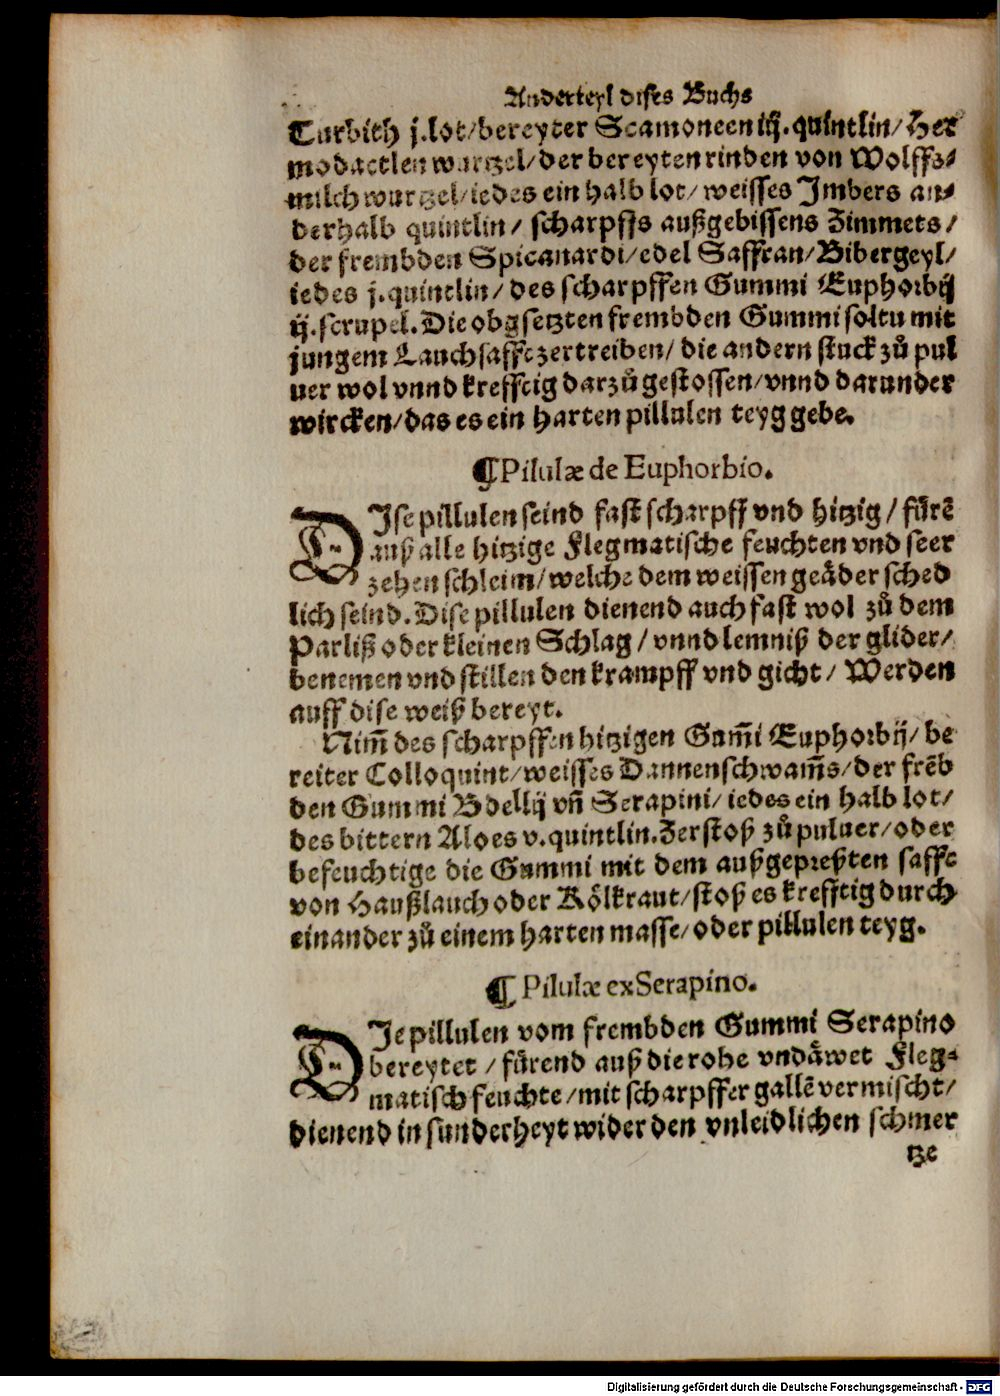 Anderteyl dises Buchs
Turbith j.lot/bereyter Scamoneen iij.quintlin/Her
modactlen wurtzel/der bereyten rinden von Wolffs⸗
milch wurtzel/iedes ein halb lot/weisses Jmbers an⸗
derhalb quintlin/ scharpffs außgebissens Zimmets/
der frembden Spicanardi/edel Saffran/Bibergeyl/
iedes j.quintlin/des scharpffen Gummi Euphorbij
ij.scrupel.Die obgsetzten frembden Gummi soltu mit
jungem Lauchsafft zertreiben/ die andern stuck zů pul
uer wol vnnd krefftig darzů gestossen/vnnd darunder
wircken/das es ein harten pillulen teyg gebe.
¶Pilulæ de Euphorbio.
DJse pillulen seind fast scharpff vnd hitzig/fürē
auß alle hitzige Flegmatische feuchten vnd seer
zehen schleim/welche dem weissen geäder sched
lich seind.Dise pillulen dienend auch fast wol zů dem
Parliß oder kleinen Schlag/vnnd lemniß der glider/
benemen vnd stillen den krampff vnd gicht/ Werden
auff dise weiß bereyt.
Nim̄ des scharpffen hitzigen Gum̄i Euphorbij/be
reiter Colloquint/weisses Dannenschwam̄s/der frēb
den Gummi Bdellij vn̄ Serapini/iedes ein halb lot/
des bittern Aloes v.quintlin.Zerstoß zů puluer/oder
befeuchtige die Gummi mit dem außgepreßten safft
von Haußlauch oder Kölkraut/stoß es krefftig durch
einander zů einem harten masse/oder pillulen teyg.
¶Pilulæ ex Serapino.
DJe pillulen vom frembden Gummi Serapino
bereytet/fürend auß die rohe vndäwet Fleg⸗
matisch feuchte/mit scharpffer gallē vermischt/
dienend in sunderheyt wider den vnleidlichen schmer
tze
Digitalisierung gefördert durch die Deutsche Forschungsgemeinschaft - DFG